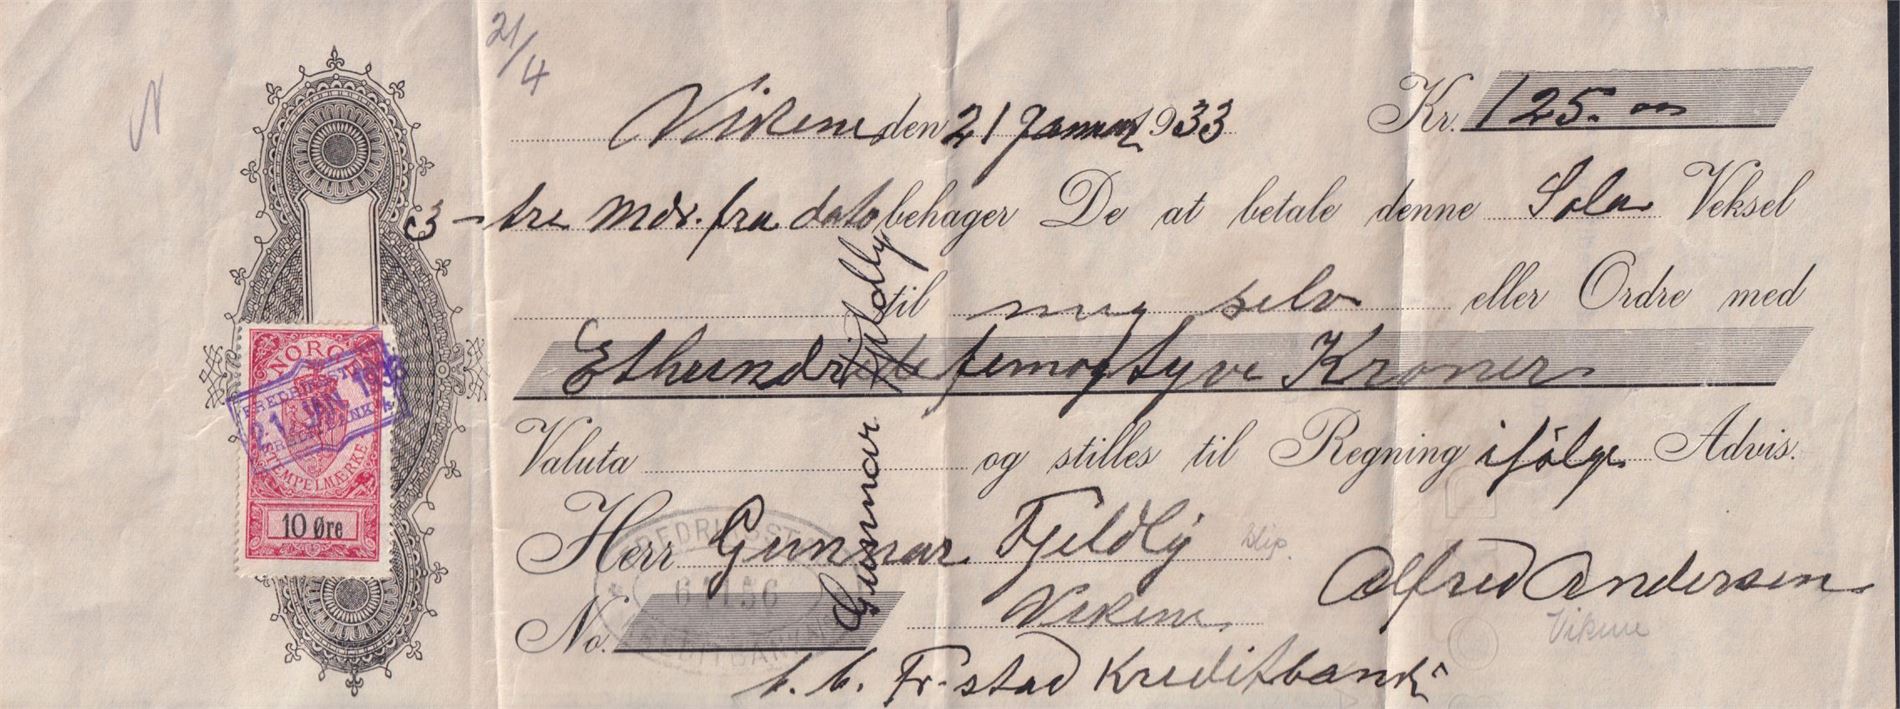 21/4
Vikene den 21 Januar 1933 Kr. 125.00
3 - tre mdr. fra dato behager De at betale denne Sola Veksel
til meg selv eller Ordre med
Ethundrede femogtyve Kroner
Valuta og stilles til Regning ifölge Advis.
Herr Gunnar Fjeldly
Vikene
Alfred Andersen
Vikene
No.
b. b. Fr.stad Kreditbank
Gunnar Fjeldly
NORGE
STEMPELMÆRKE
10 Øre
21 JAN 1933
FREDRIKSSTAD
KREDITBANK
6 11 36